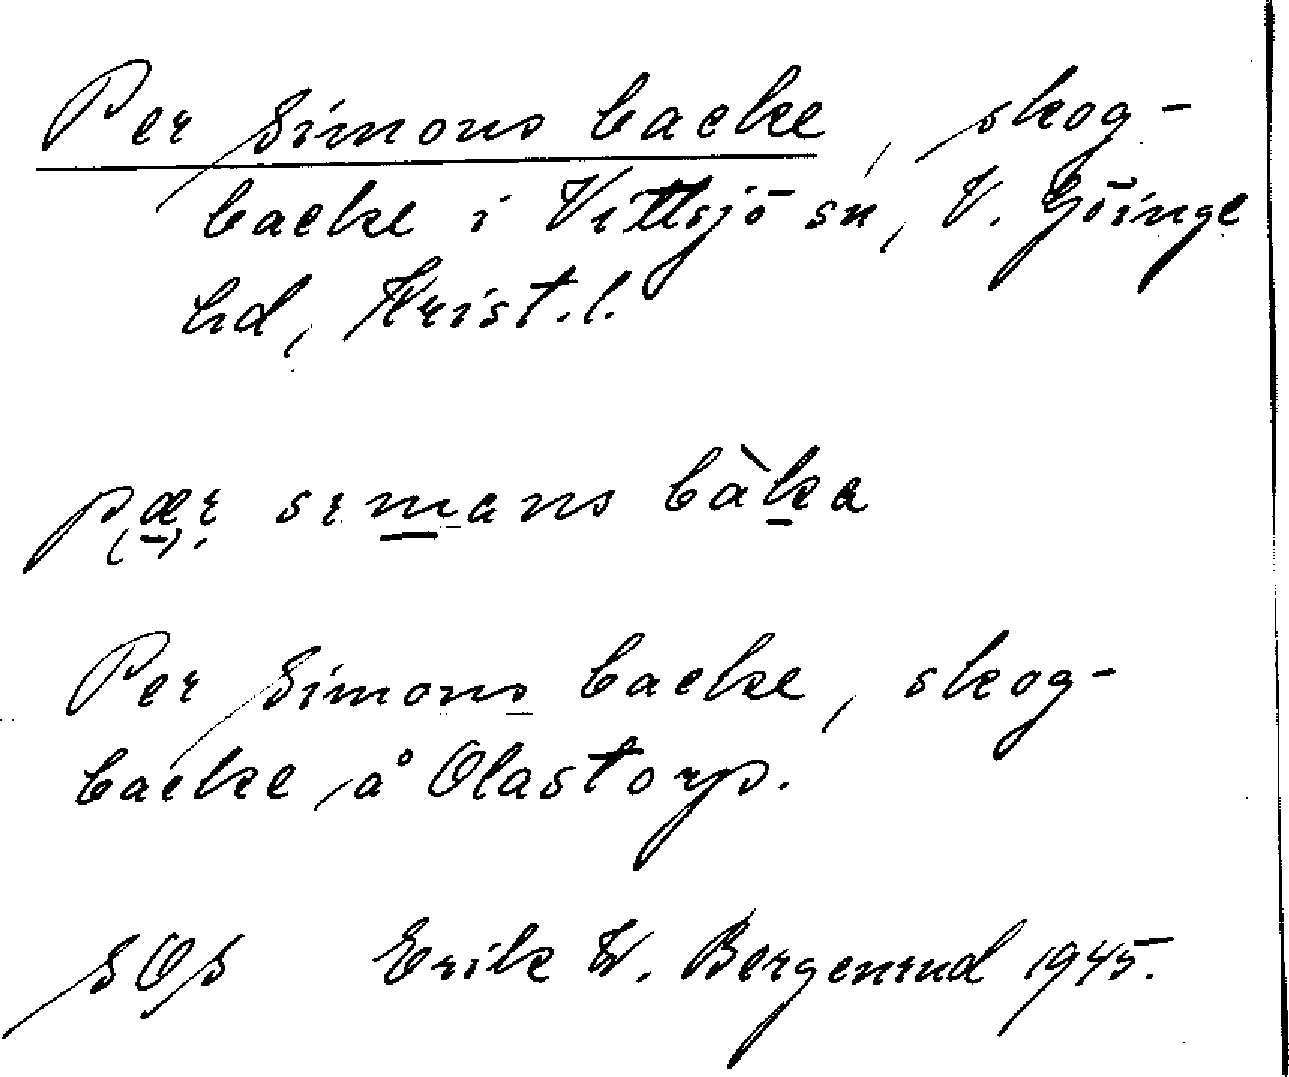 Per Simons backe, skog-
backe i Vittsjö sn, V. Göinge
hd, Krist. l.
pær simans bàka
Per Simons backe, skog-
backe å Olastorp.
SOS Erik W. Bergenrud 1945.